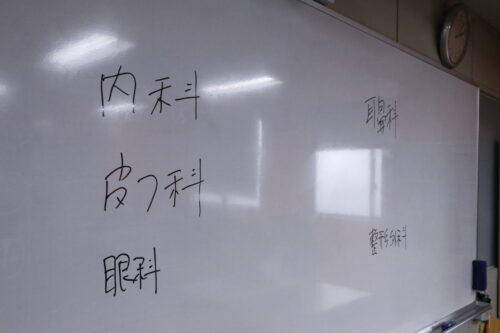 内科
皮フ科
眼科
耳鼻科
整形外科